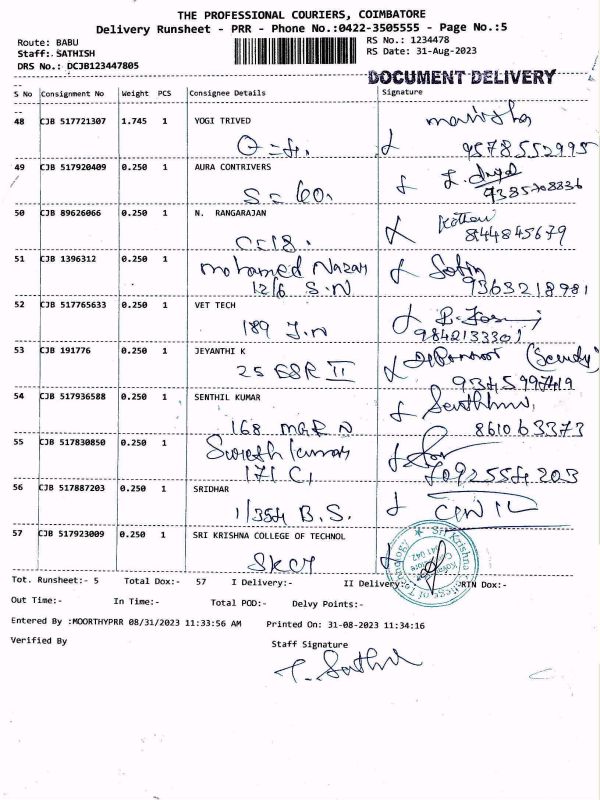 THE PROFESSIONAL COURIERS, COIMBATORE
Delivery Runsheet - PRR - Phone No.:0422-3505555 - Page No.:5
Route: BABU RS No.: 1234478
Staff: SATHISH RS Date: 31-Aug-2023
DRS No.: DCJB123447805
DOCUMENT DELIVERY
S No Consignment No Weight PCS Consignee Details Signature
48 CJB 517721307 1.745 1 YOGI TRIVED
9578552995
49 CJB 517920409 0.250 1 AURA CONTRIVERS
9385708836
50 CJB 89626066 0.250 1 N. RANGARAJAN
8144845679
51 CJB 1396312 0.250 1 mohamed Nazar
12/6 S.N 9363218981
52 CJB 517765633 0.250 1 VET TECH
189 J.N 9842133301
53 CJB 191776 0.250 1 JEYANTHI K
25 ESR II
54 CJB 517936588 0.250 1 SENTHIL KUMAR
168 MGR N 861063373
55 CJB 517830850 0.250 1 Suresh Kumar
171 C1
56 CJB 517887203 0.250 1 SRIDHAR
1/354 B.S.
57 CJB 517923009 0.250 1 SRI KRISHNA COLLEGE OF TECHNOL
SKCT
Tot. Runsheet:- 5 Total Dox:- 57 I Delivery:- II Delivery:- RTN Dox:-
Out Time:- In Time:- Total POD:- Delvy Points:-
Entered By :MOORTHYPRR 08/31/2023 11:33:56 AM Printed On: 31-08-2023 11:34:16
Verified By Staff Signature